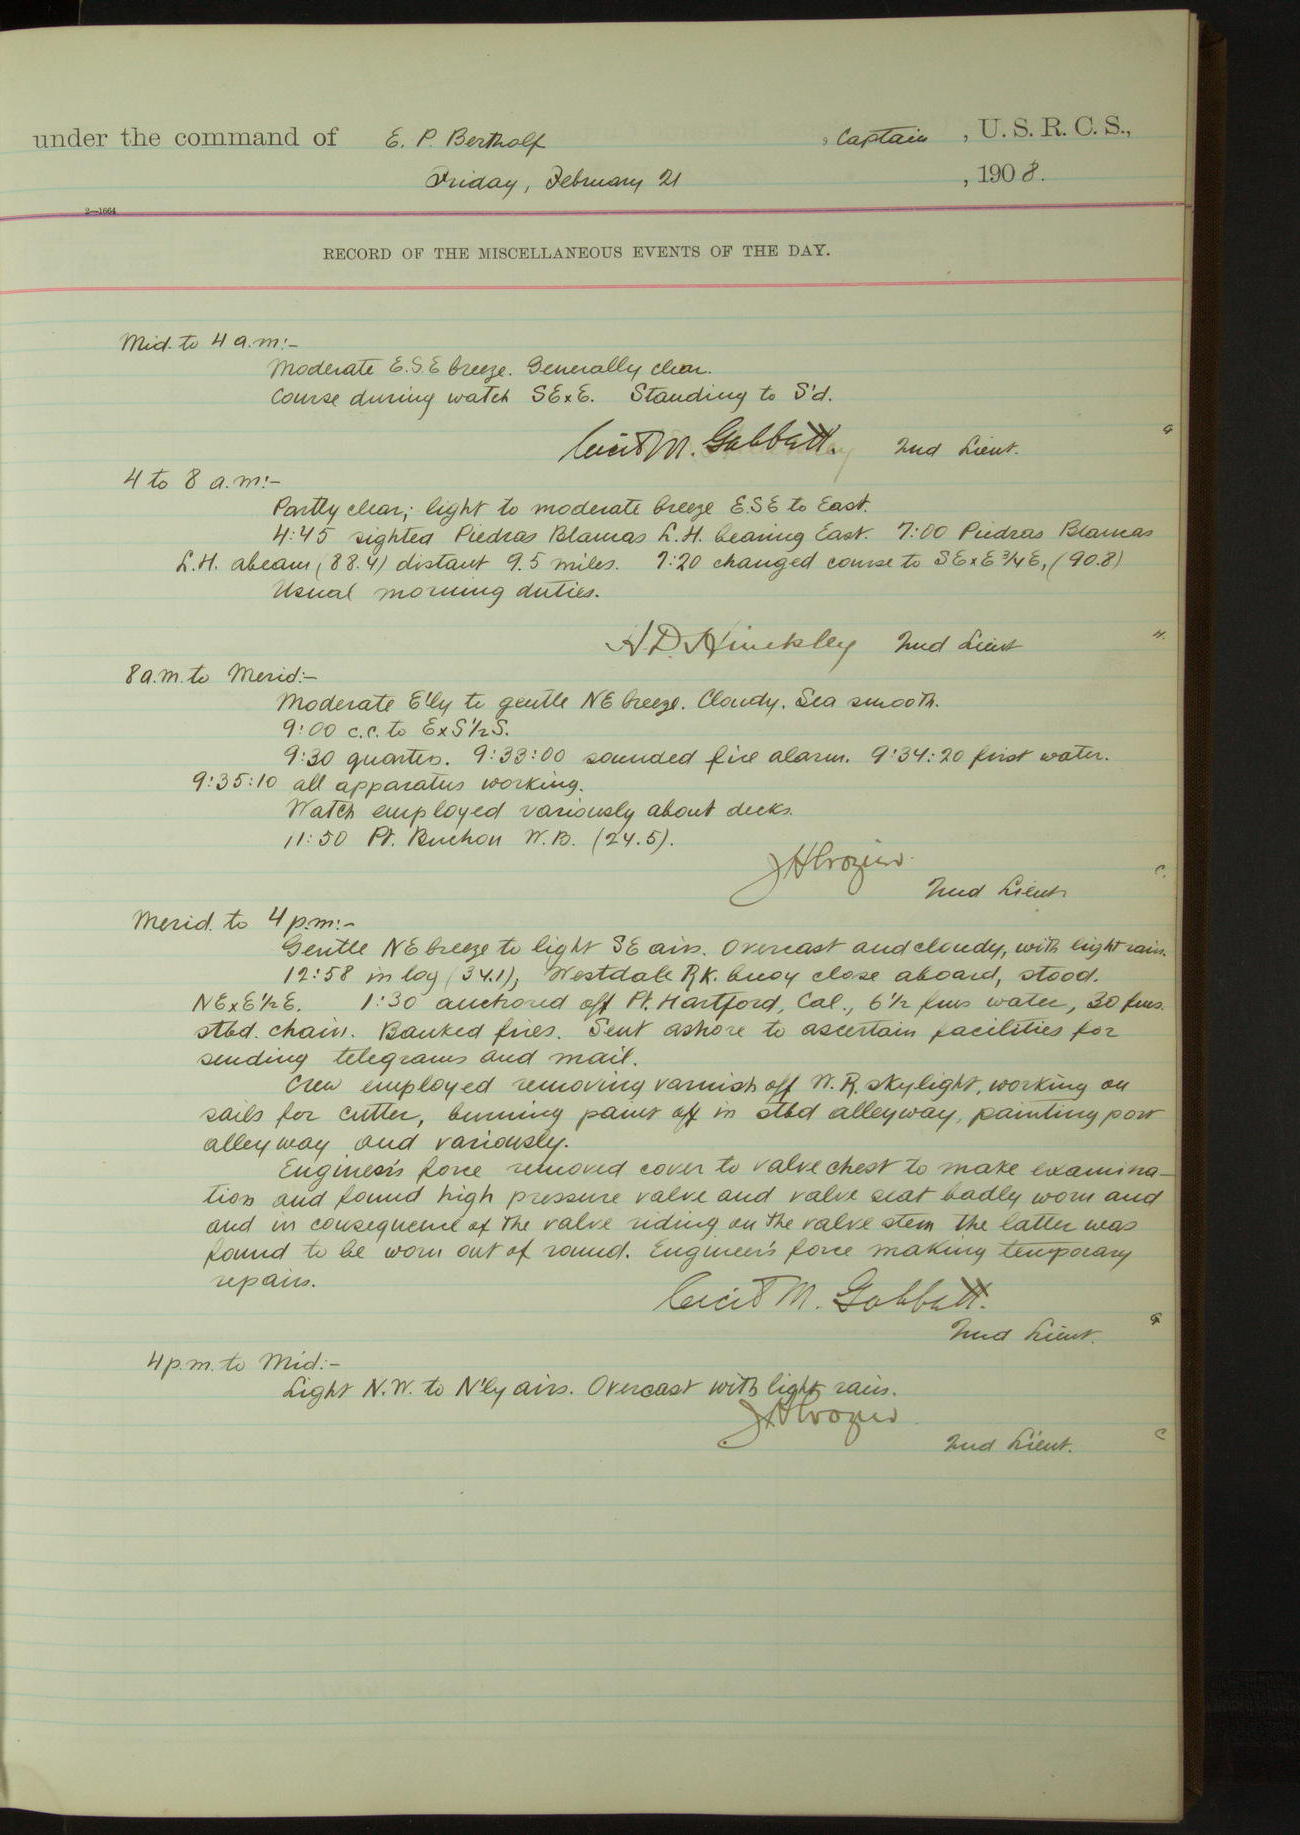 under the command of E. P. Bertholf, Captain, U. S. R. C. S.,
Friday, February 21, 1908.
2—1664
RECORD OF THE MISCELLANEOUS EVENTS OF THE DAY.
Mid. to 4 a.m:-
Moderate E.S.E breeze. Generally clear.
Course during watch SExE. Standing to S'd.
Cecil M. Gabbett. 2nd Lieut.
G
4 to 8 a.m:-
Partly clear; light to moderate breeze E.S.E to East.
4:45 sighted Piedras Blancas L.H. bearing East. 7:00 Piedras Blancas
L.H. abeam (88.4) distant 9.5 miles. 7:20 changed course to SExE¾E, (90.8)
Usual morning duties.
H.D. Hinckley 2nd Lieut
H.
8 a.m. to Merid:-
Moderate E'ly to gentle NE breeze. Cloudy. Sea smooth.
9:00 c.c. to ExS½S.
9:30 quarters. 9:33:00 sounded fire alarm. 9:34:20 first water.
9:35:10 all apparatus working.
Watch employed variously about decks.
11:50 Pt. Buchon W.B. (24.5).
J H Crozier.
2nd Lieut
C.
Merid. to 4 p.m:-
Gentle NE breeze to light SE airs. Overcast and cloudy, with light rain.
12:58 in log (34.1), Westdale Rk. buoy close aboard, stood.
NExE½E. 1:30 anchored off Pt. Hartford, Cal., 6½ fms water, 30 fms.
stbd. chain. Banked fires. Sent ashore to ascertain facilities for
sending telegrams and mail.
Crew employed removing varnish off W.R. skylight, working on
sails for cutter, burning paint off in stbd alleyway, painting port
alleyway and variously.
Engineer's force removed cover to valve chest to make examina-
tion and found high pressure valve and valve seat badly worn and
and in consequence of the valve riding on the valve stem the latter was
found to be worn out of round. Engineer's force making temporary
repairs.
Cecil M. Gabbett.
2nd Lieut.
G
4 p.m. to Mid:-
Light N.W. to N'ly airs. Overcast with light rain.
J H Crozier
2nd Lieut.
C